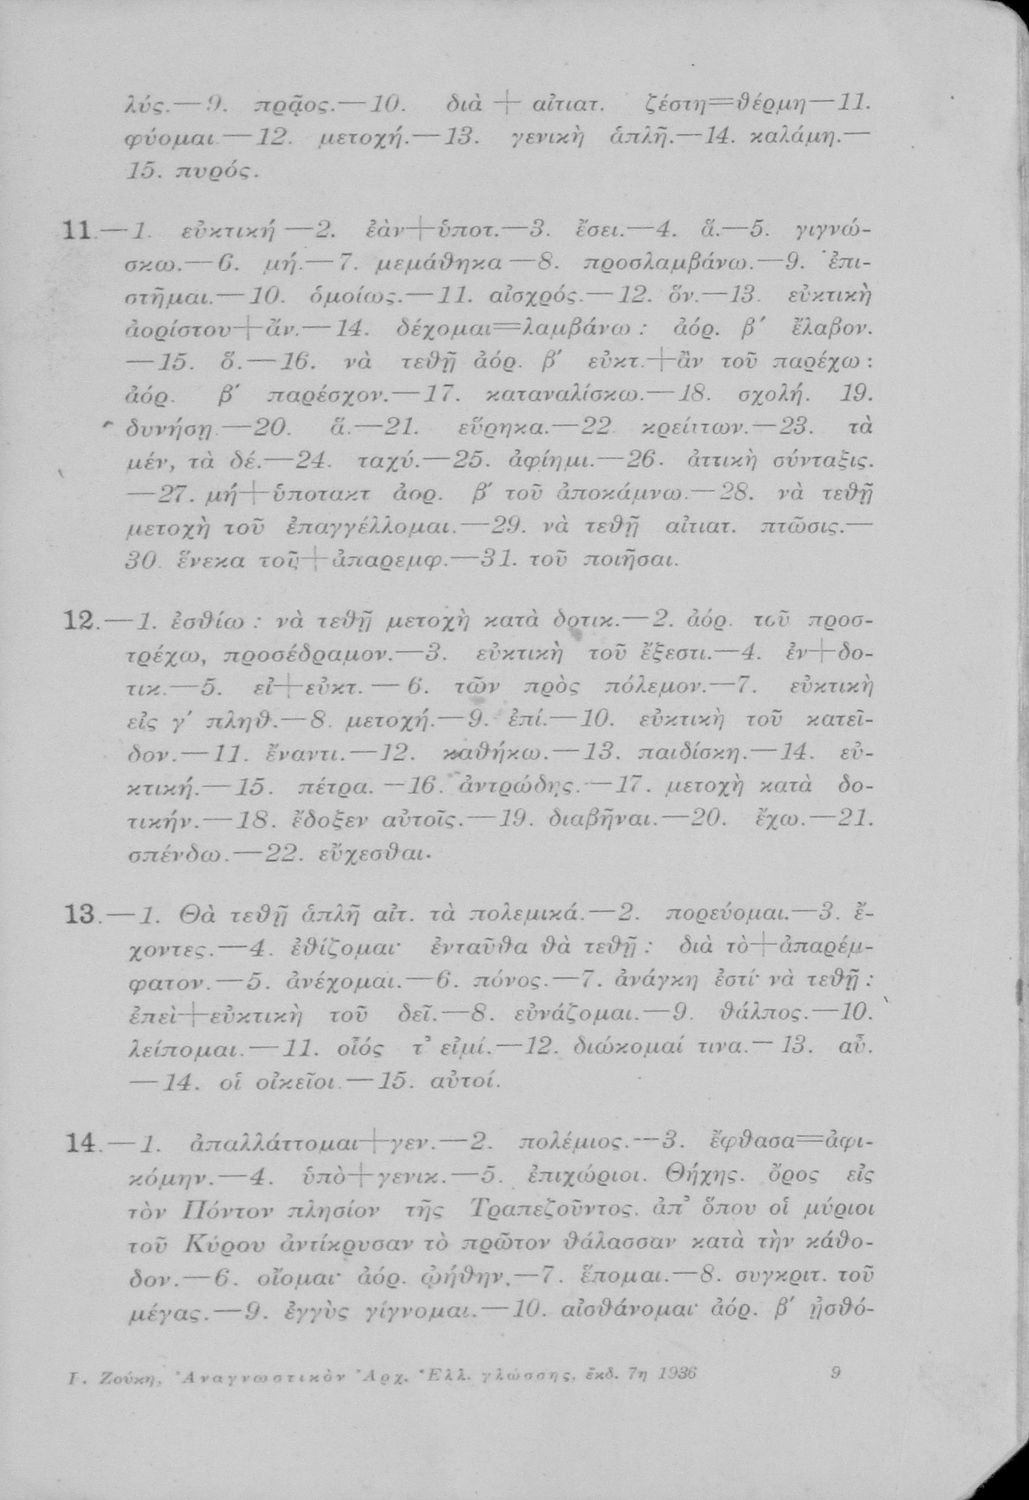 λύς.—9. πρᾷος.—10. διὰ + αἰτιατ. ζέστη=θέρμη—11.
φύομαι.—12. μετοχή.—13. γενικὴ ἁπλῆ.—14. καλάμη.—
15. πυρός.
11.—1. εὐκτική—2. ἐὰν+ὑποτ.—3. ἔσει.—4. ἅ.—5. γιγνώ-
σκω.—6. μή.—7. μεμάθηκα—8. προσλαμβάνω.—9. Ἐπι-
στῆμαι.—10. ὁμοίως.—11. αἰσχρός.—12. ὅν.—13. εὐκτικὴ
ἀορίστου+ἄν.—14. δέχομαι=λαμβάνω : ἀόρ. β΄ ἔλαβον.
—15. ὅ.—16. νὰ τεθῇ ἀόρ. β΄ εὐκτ.+ἂν τοῦ παρέχω :
ἀόρ. β΄ παρέσχον.—17. καταναλίσκω.—18. σχολή. 19.
δυνήσῃ.—20. ἅ.—21. εὕρηκα.—22. κρείττων.—23. τὰ
μέν, τὰ δέ.—24. ταχύ.—25. ἀφίημι.—26. ἀττικὴ σύνταξις.
—27. μή+ὑποτακτ ἀορ. β΄ τοῦ ἀποκάμνω.—28. νὰ τεθῇ
μετοχὴ τοῦ ἐπαγγέλλομαι.—29. νὰ τεθῇ αἰτιατ. πτῶσις.—
30. ἕνεκα τοῦ+ἀπαρεμφ.—31. τοῦ ποιῆσαι.
12.—1. ἐσθίω : νὰ τεθῇ μετοχὴ κατὰ δοτικ.—2. ἀόρ. τοῦ προσ-
τρέχω, προσέδραμον.—3. εὐκτικὴ τοῦ ἔξεστι.—4. ἐν+δο-
τικ.—5. εἰ+εὐκτ.—6. τῶν πρὸς πόλεμον.—7. εὐκτικὴ
εἰς γ΄ πληθ.—8. μετοχή.—9. ἐπί.—10. εὐκτικὴ τοῦ κατεῖ-
δον.—11. ἔναντι.—12. καθήκω.—13. παιδίσκη.—14. εὐ-
κτική.—15. πέτρα.—16. ἀντρώδης.—17. μετοχὴ κατὰ δο-
τικήν.—18. ἔδοξεν αὐτοῖς.—19. διαβῆναι.—20. ἔχω.—21.
σπένδω.—22. εὔχεσθαι.
13.—1. Θὰ τεθῇ ἁπλῆ αἰτ. τὰ πολεμικά.—2. πορεύομαι.—3. ἔ-
χοντες.—4. ἐθίζομαι· ἐνταῦθα θὰ τεθῇ : διὰ τὸ+ἀπαρέμ-
φατον.—5. ἀνέχομαι.—6. πόνος.—7. ἀνάγκη ἐστί· νὰ τεθῇ :
ἐπεὶ+εὐκτικὴ τοῦ δεῖ.—8. εὐνάζομαι.—9. θάλπος.—10.
λείπομαι.—11. οἷός τ᾽ εἰμί.—12. διώκομαί τινα.—13. αὖ.
—14. οἱ οἰκεῖοι.—15. αὐτοί.
14.—1. ἀπαλλάττομαι+γεν.—2. πολέμιος.—3. ἔφθασα=ἀφι-
κόμην.—4. ὑπὸ+γενικ.—5. ἐπιχώριοι. Θήχης. ὄρος εἰς
τὸν Πόντον πλησίον τῆς Τραπεζοῦντος. ἀπ᾽ ὅπου οἱ μύριοι
τοῦ Κύρου ἀντίκρυσαν τὸ πρῶτον θάλασσαν κατὰ τὴν κάθο-
δον.—6. οἴομαι· ἀόρ. ᾠήθην.—7. ἕπομαι.—8. συγκριτ. τοῦ
μέγας.—9. ἐγγὺς γίγνομαι.—10. αἰσθάνομαι· ἀόρ. β΄ ᾐσθό-
Γ. Ζούκη, Ἀναγνωστικὸν Ἀρχ. Ἑλλ. γλώσσης, ἔκδ. 7η 1936 9